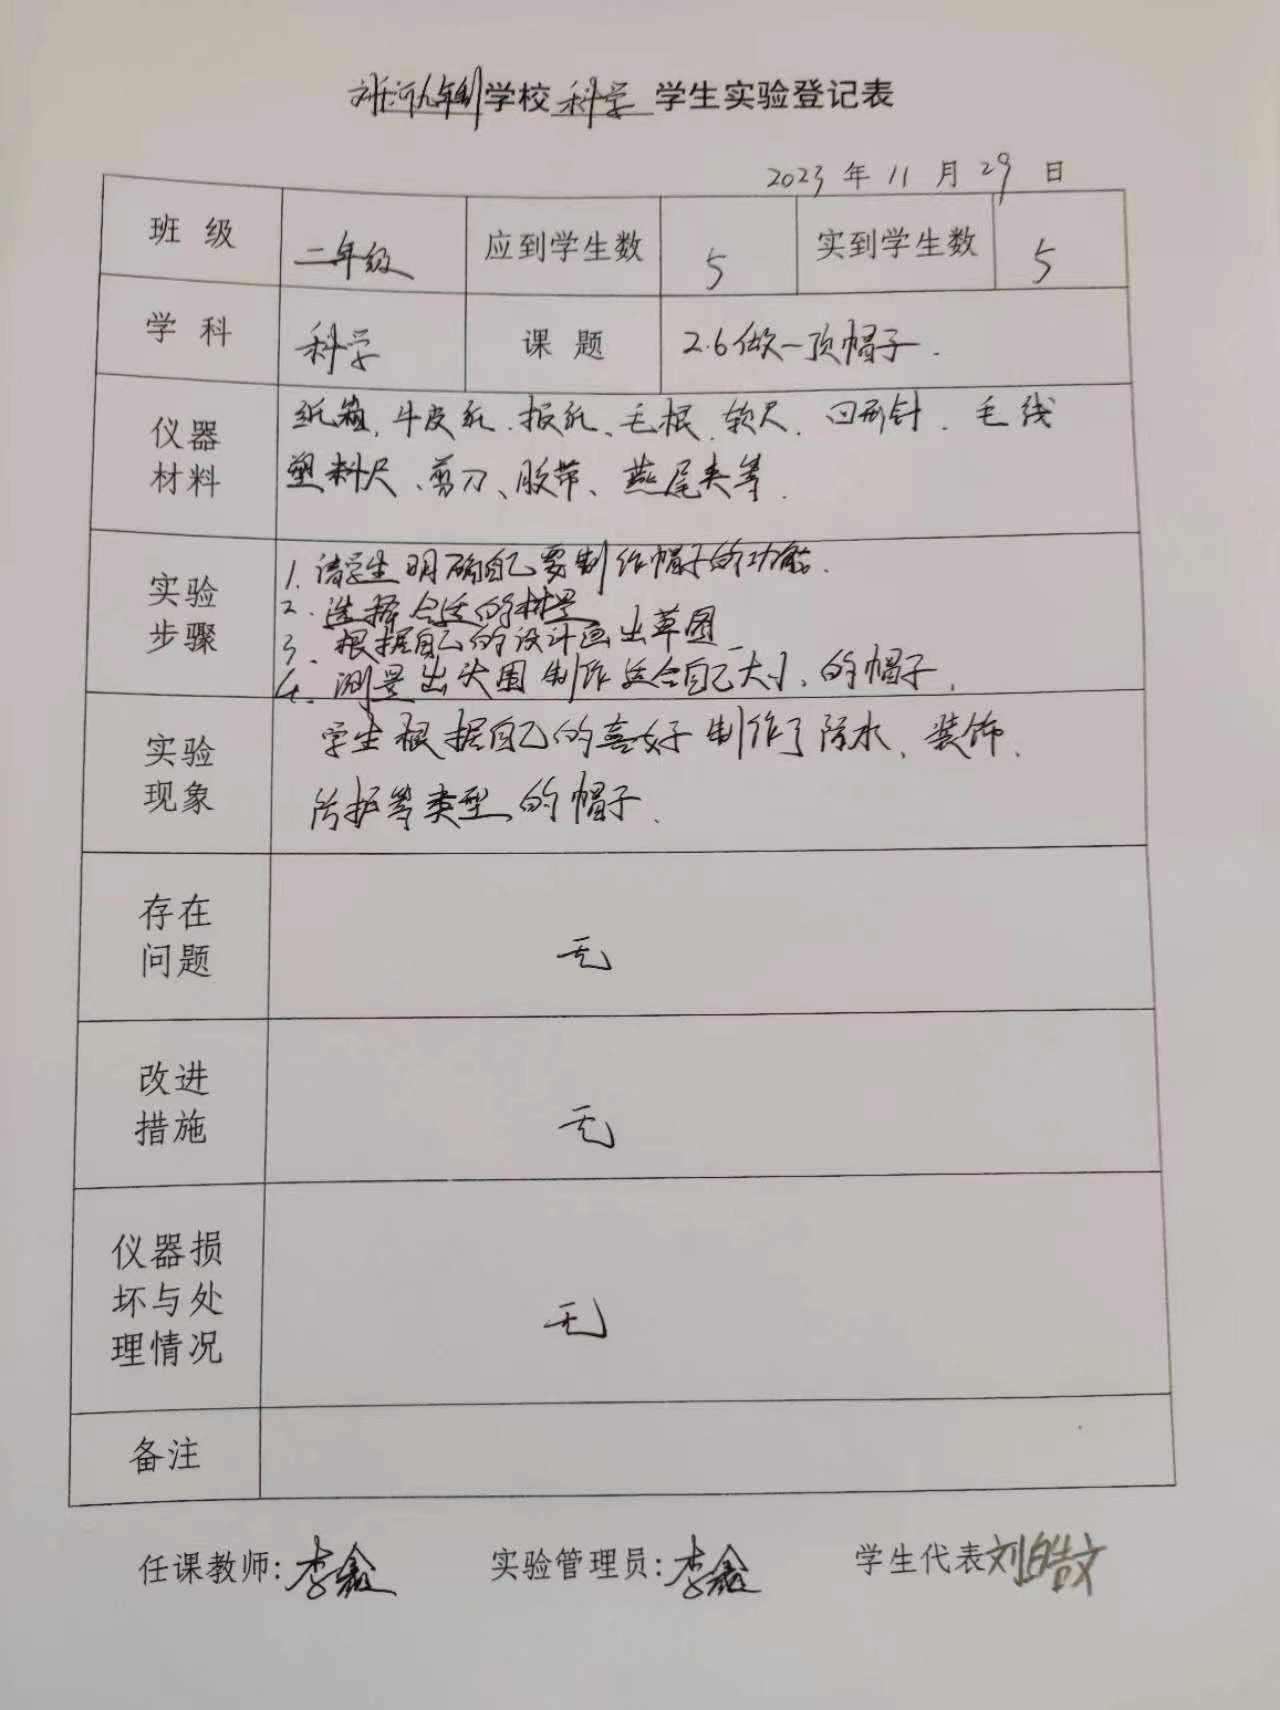 九年制学校 科学 学生实验登记表
2023 年 11 月 29 日
班级 二年级 应到学生数 5 实到学生数 5
学科 科学 课题 2.6做一顶帽子.
仪器材料
纸箱、牛皮纸、报纸、毛根、软尺、回形针、毛线
塑料尺、剪刀、胶带、燕尾夹等.
实验步骤
1. 请学生明确自己要制作帽子的功能.
2. 选择合适的材量
3. 根据自己的设计画出草图
4. 测量出头围制作适合自己大小的帽子.
实验现象
学生根据自己的喜好制作了防水、装饰、
防护等类型的帽子.
存在问题
无
改进措施
无
仪器损坏与处理情况
无
备注
任课教师:李鑫 实验管理员:李鑫 学生代表刘皓文